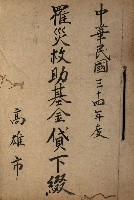 中華民國三十四年度
罹災救助基金貸下綴
高雄市